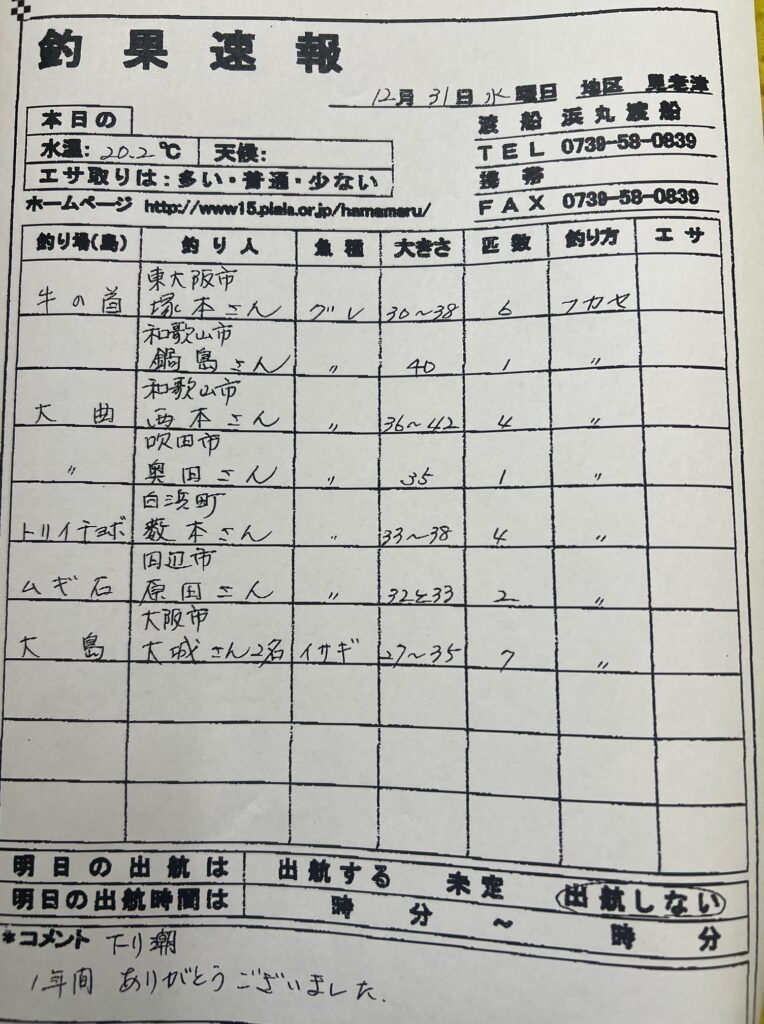 釣果速報
12月31日水曜日 地区 見老津
本日の
水温:20.2℃ 天候:
エサ取りは:多い・普通・少ない
ホームページ http://www15.plala.or.jp/hamamaru/
渡船 浜丸渡船
TEL 0739-58-0839
携帯
FAX 0739-58-0839
釣り場(島) 釣り人 魚種 大きさ 匹数 釣り方 エサ
東大阪市
牛の首 塚本さん グレ 30〜38 6 フカセ
和歌山市
鍋島さん 〃 40 1 〃
和歌山市
大曲 西本さん 〃 36〜42 4 〃
吹田市
〃 奥田さん 〃 35 1 〃
白浜町
トリイチョボ 数本さん 〃 33〜38 4 〃
田辺市
ムギ石 原田さん 〃 32と33 2 〃
大阪市
大島 大城さん2名 イサギ 27〜35 7 〃
明日の出航は 出航する 未定 出航しない
明日の出航時間は 時 分 〜 時 分
*コメント 下り潮
1年間 ありがとうございました。